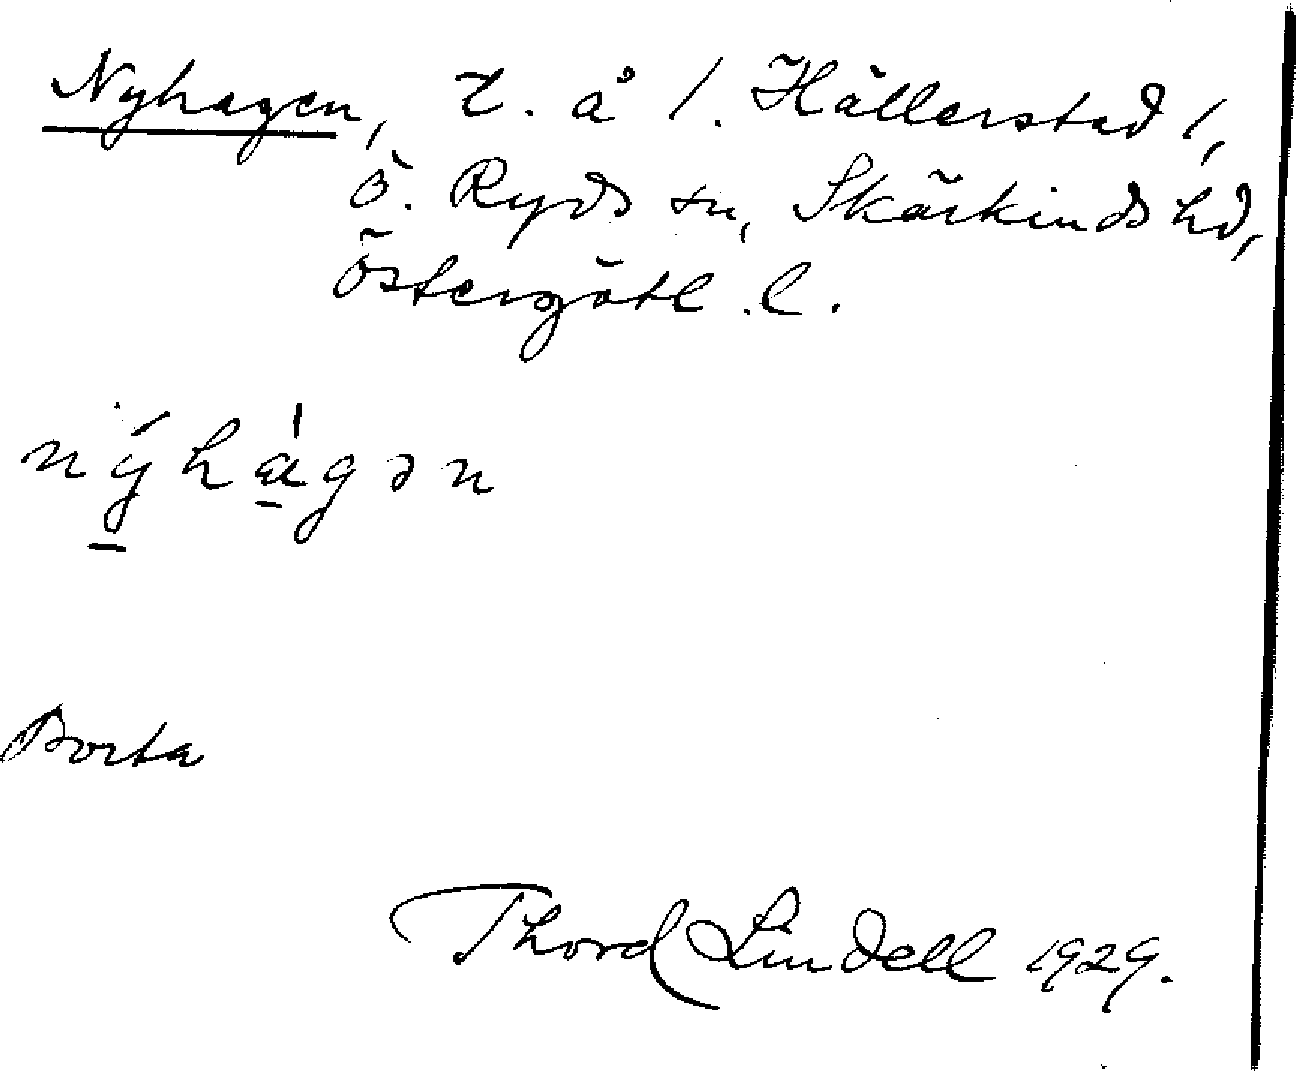 Nyhagen, t. å 1. Hällerstad 1,
Ö. Ryds sn, Skärkinds hd,
Östergötl. l.
nýhágən
Borta
Thord Lindell 1929.